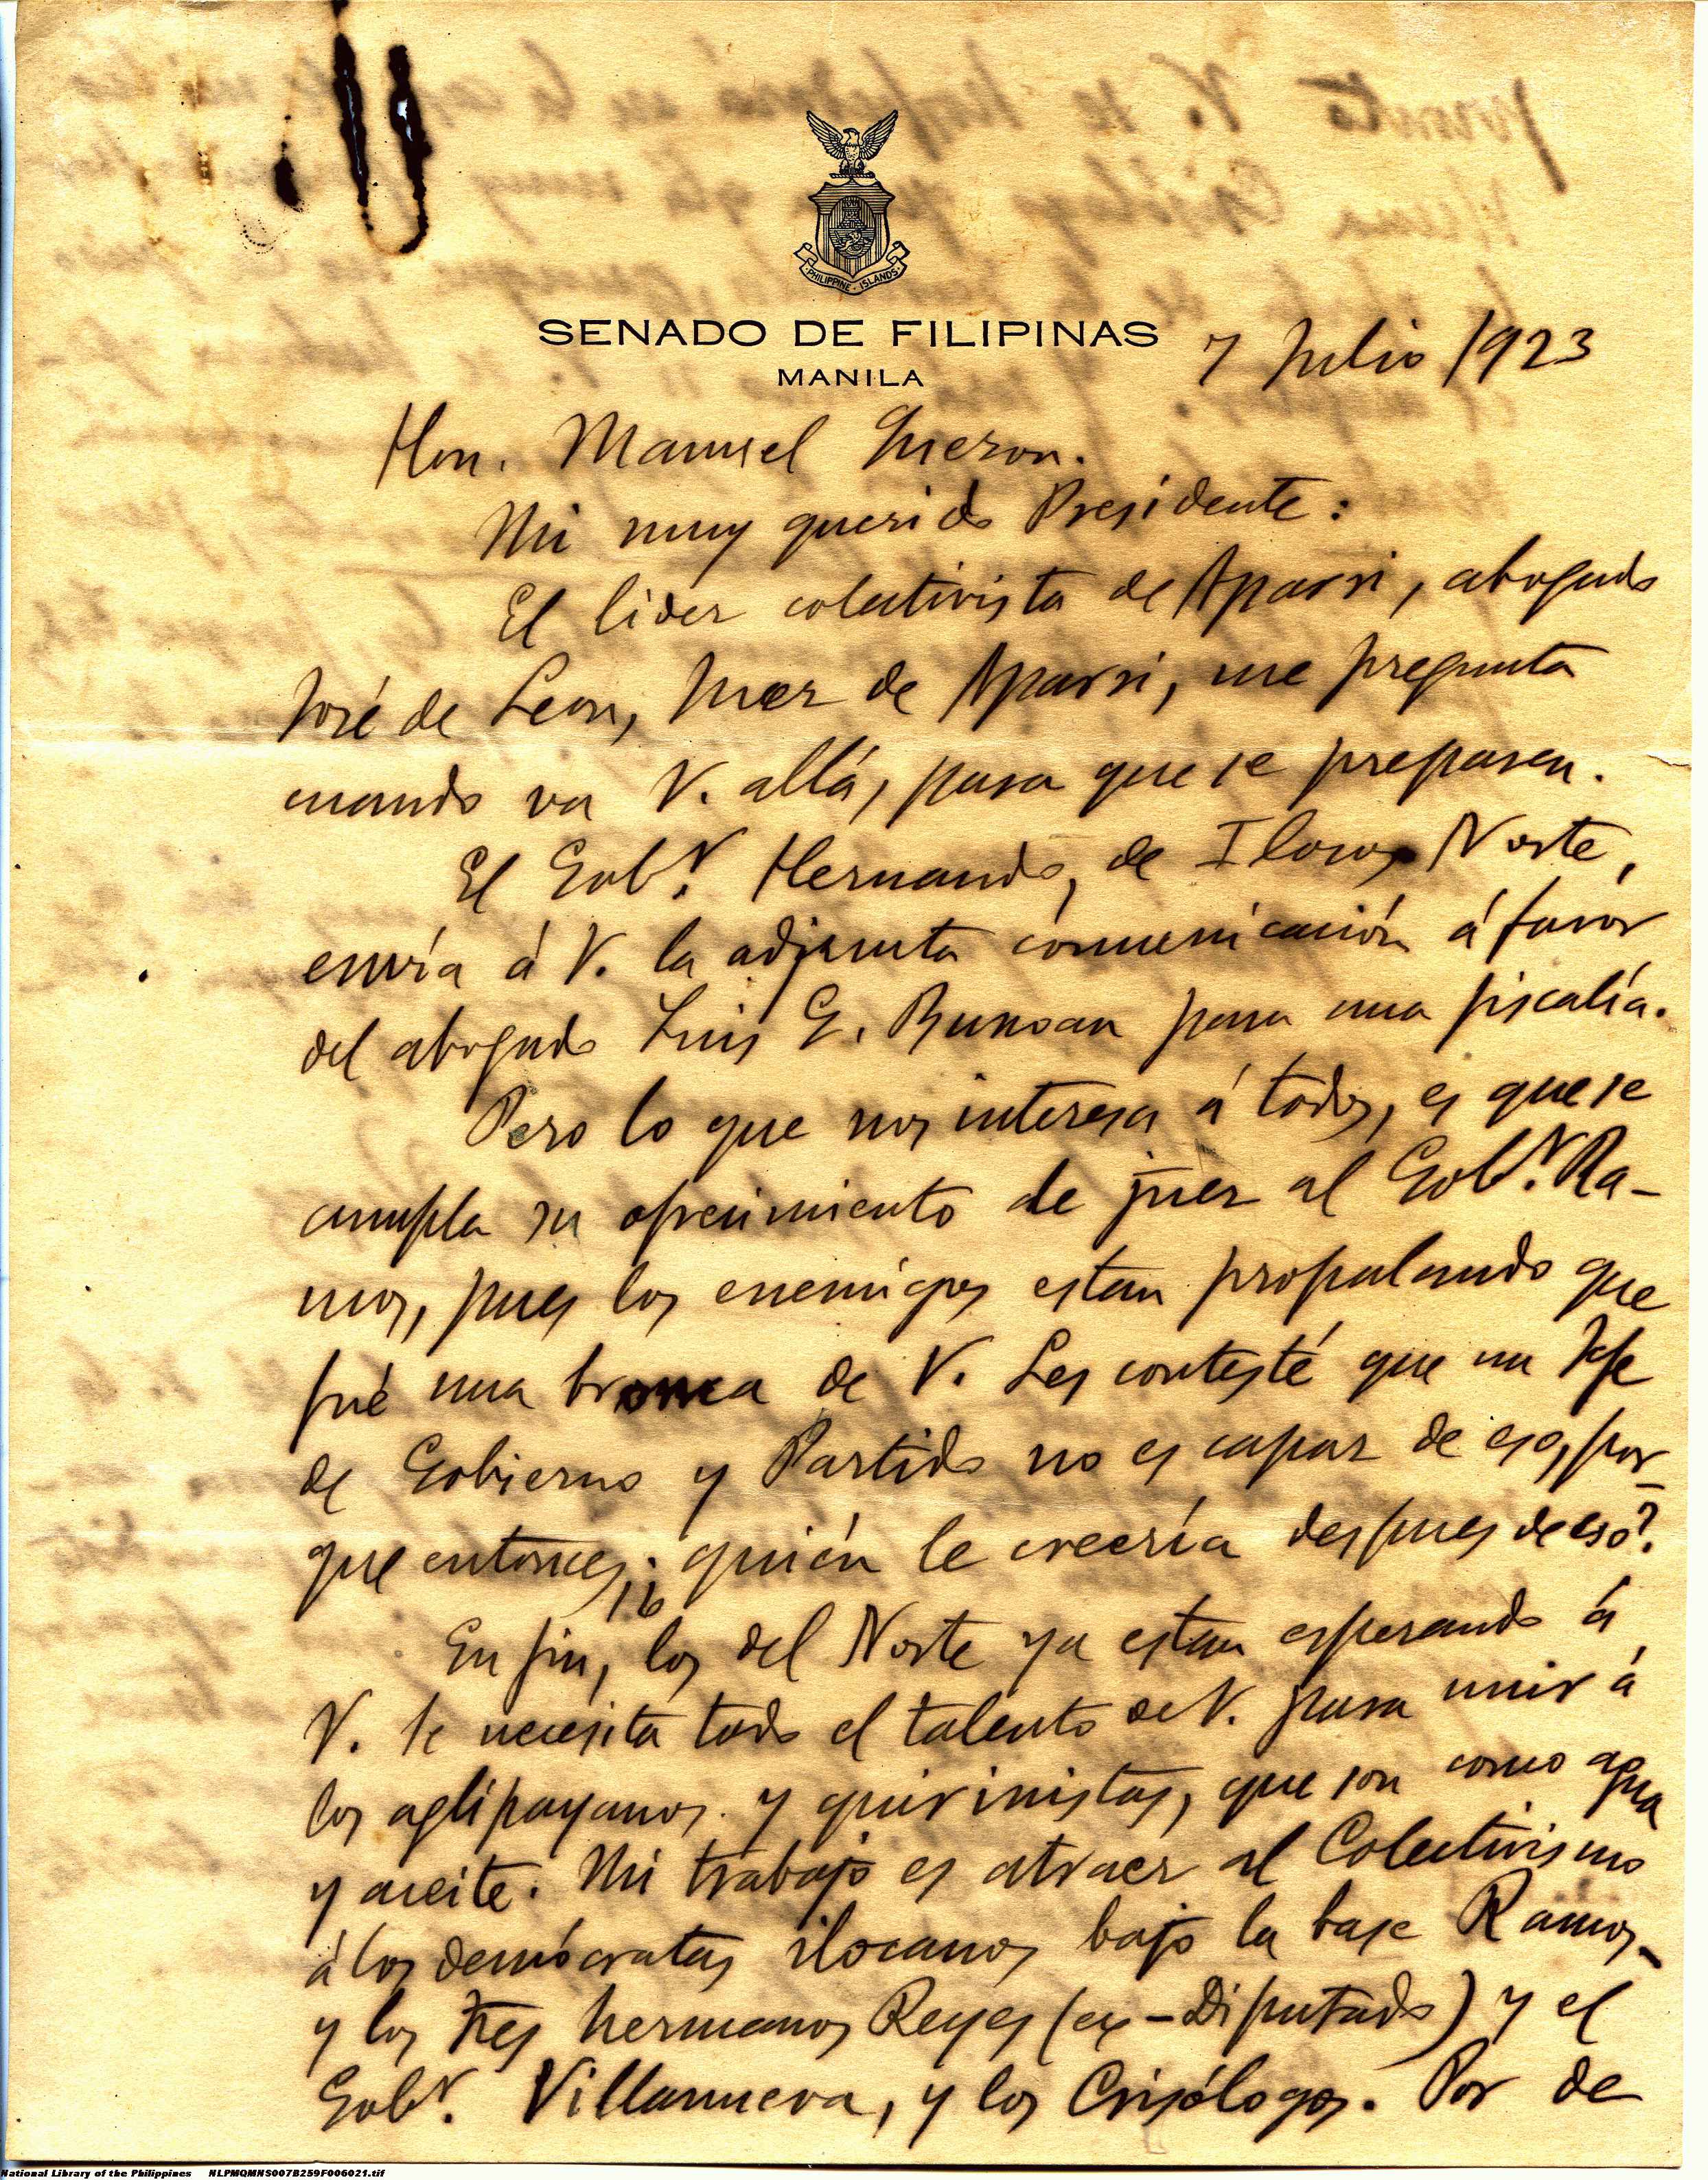 PHILIPPINE ISLANDS
SENADO DE FILIPINAS
MANILA
7 Julio 1923
Hon. Manuel Quezon.
Mi muy querido Presidente:
El lider colectivista de Aparri, abogado
José de Leon, Juez de Aparri, me pregunta
cuando va V. allá, para que se preparen.
El Gobr. Hernando, de Ilocos Norte,
envía á V. la adjunta comunicación á favor
del abogado Luis G. para una fiscalía.
Pero lo que nos interesa á todos, es que se
cumpla su ofrecimiento de juez al Gobr. Ra-
mos, pues los enemigos estan propalando que
fué una broma de V. Les contesté que un Jefe
de Gobierno y Partido no es capaz de eso, por-
que entonces ¿quién le creería despues de eso?
16
En fin, los del Norte ya estan esperando á
V. Se necesita todo el talento de V. para unir á
los aglipayanos y quirinistas, que son como agua
y aceite. Mi trabajo es atraer al Colectivismo
á los demócratas ilocanos bajo la base Ramos-
y los tres hermanos Reyes (ex-Diputado) y el
Gobr. Villanueva, y los Crisólogos. Por de
National Library of the Philippines NLPMQMNS007B259F006021.tif